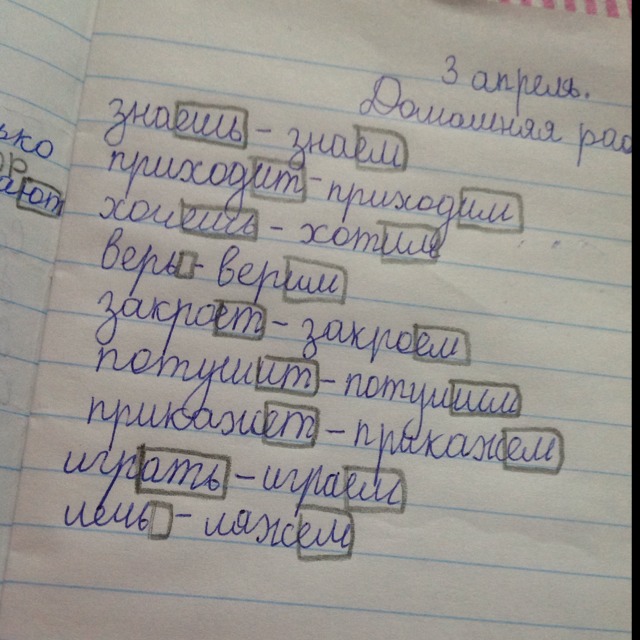 3 апреля.
Домашняя раб
знаешь - знаем
приходит - приходим
хочешь - хотим
верь - верим
закроет - закроем
потушит - потушим
прикажет - прикажем
играть - играем
лечь - ляжем